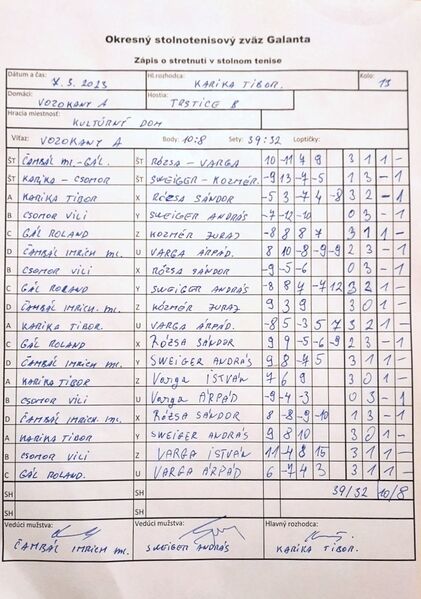 Okresný stolnotenisový zväz Galanta
Zápis o stretnutí v stolnom tenise
Dátum a čas: 7. 3. 2023 Hl.rozhodca: KARIKA TIBOR. Kolo: 19
Domáci: VOZOKANY A Hostia: TRSTICE B
Hracia miestnosť: KULTÚRNY DOM
Víťaz: VOZOKANY A Body: 10:8 Sety: 39:32 Loptičky:
ŠT ČAMBÁL ml.-GÁL. ŠT RÓZSA - VARGA 10 -11 7 9 3 1 1 -
ŠT KARIKA - CSOMOR ŠT SWEIGER - KOZMÉR. -9 13 -7 -5 1 3 - 1
A KARIKA TIBOR X RÓZSA SÁNDOR -5 3 -7 4 -8 3 2 - 1
B CSOMOR VILI Y SWEIGER ANDRÁS -7 -12 -10 0 3 - 1
C GÁL ROLAND Z KOZMÉR JURAJ -8 8 8 7 3 1 1 -
D ČAMBÁL IMRICH ml. U VARGA ÁRPÁD. 8 10 -8 -9 -9 2 3 - 1
B CSOMOR VILI X RÓZSA SÁNDOR -9 -5 -6 0 3 - 1
C GÁL ROLAND Y SWEIGER ANDRÁS -8 8 4 -7 12 3 2 1 -
D ČAMBÁL IMRICH. ml. Z KOZMÉR JURAJ 9 3 9 3 0 1 -
A KARIKA TIBOR. U VARGA ÁRPÁD. -8 5 -3 5 7 3 2 1 -
C GÁL ROLAND X RÓZSA SÁNDOR 9 9 -5 -6 -9 2 3 - 1
D ČAMBÁL IMRICH ml. Y SWEIGER ANDRÁS 9 8 -7 5 3 1 1 -
A KARIKA TIBOR Z Varga ISTVÁN 7 6 9 3 0 1 -
B CSOMOR VILI U Varga ÁRPÁD -9 -4 -3 0 3 - 1
D ČAMBÁL IMRICH. ml. X RÓZSA SÁNDOR 8 -8 -9 -10 1 3 - 1
A KARIKA TIBOR Y SWEIGER ANDRÁS 9 8 10 3 0 1 -
B CSOMOR VILI Z VARGA ISTVÁN 11 -4 8 15 3 1 1 -
C GÁL ROLAND. U VARGA ÁRPÁD 6 -7 4 3 3 1 1 -
SH SH 39/32 10/8
SH SH
Vedúci mužstva: Vedúci mužstva: Hlavný rozhodca:
ČAMBÁL IMRICH ml. SWEIGER ANDRÁS KARIKA TIBOR.